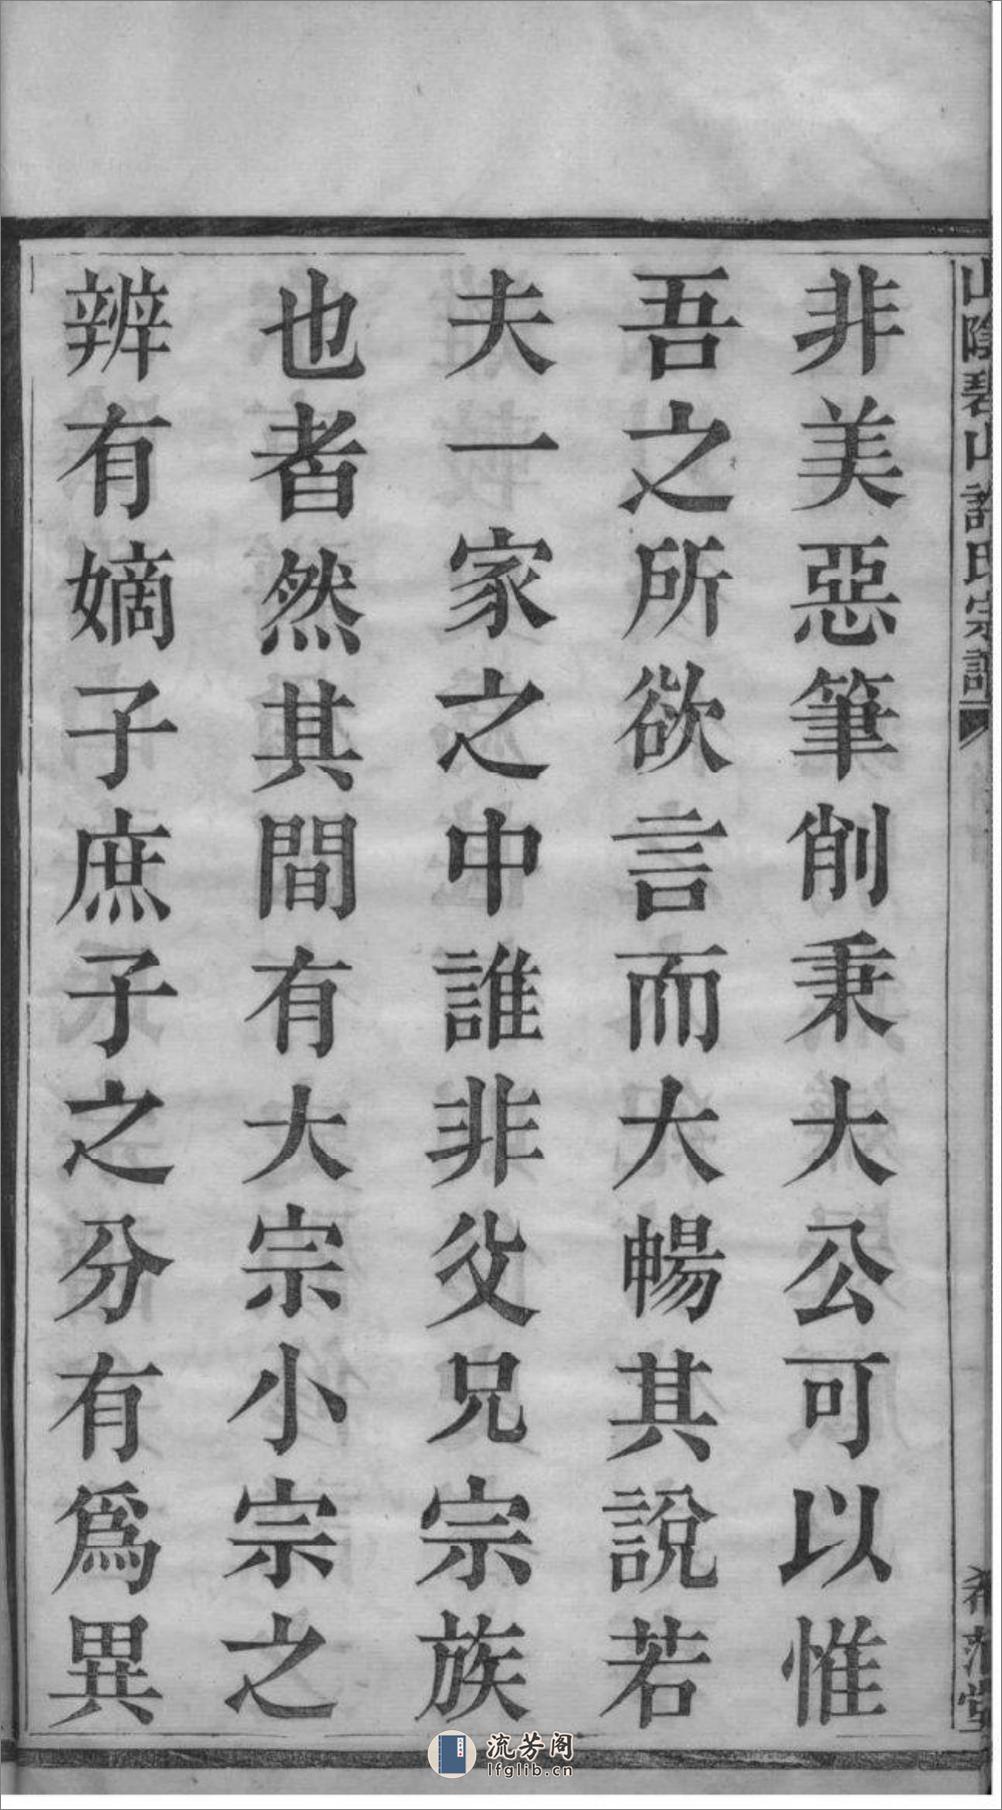 山陰碧山許氏宗譜
非美惡筆削秉大公可以惟
吾之所欲言而大暢其說若
夫一家之中誰非父兄宗族
也者然其間有大宗小宗之
辨有嫡子庶子之分有爲異
流芳阁
lfglib.cn